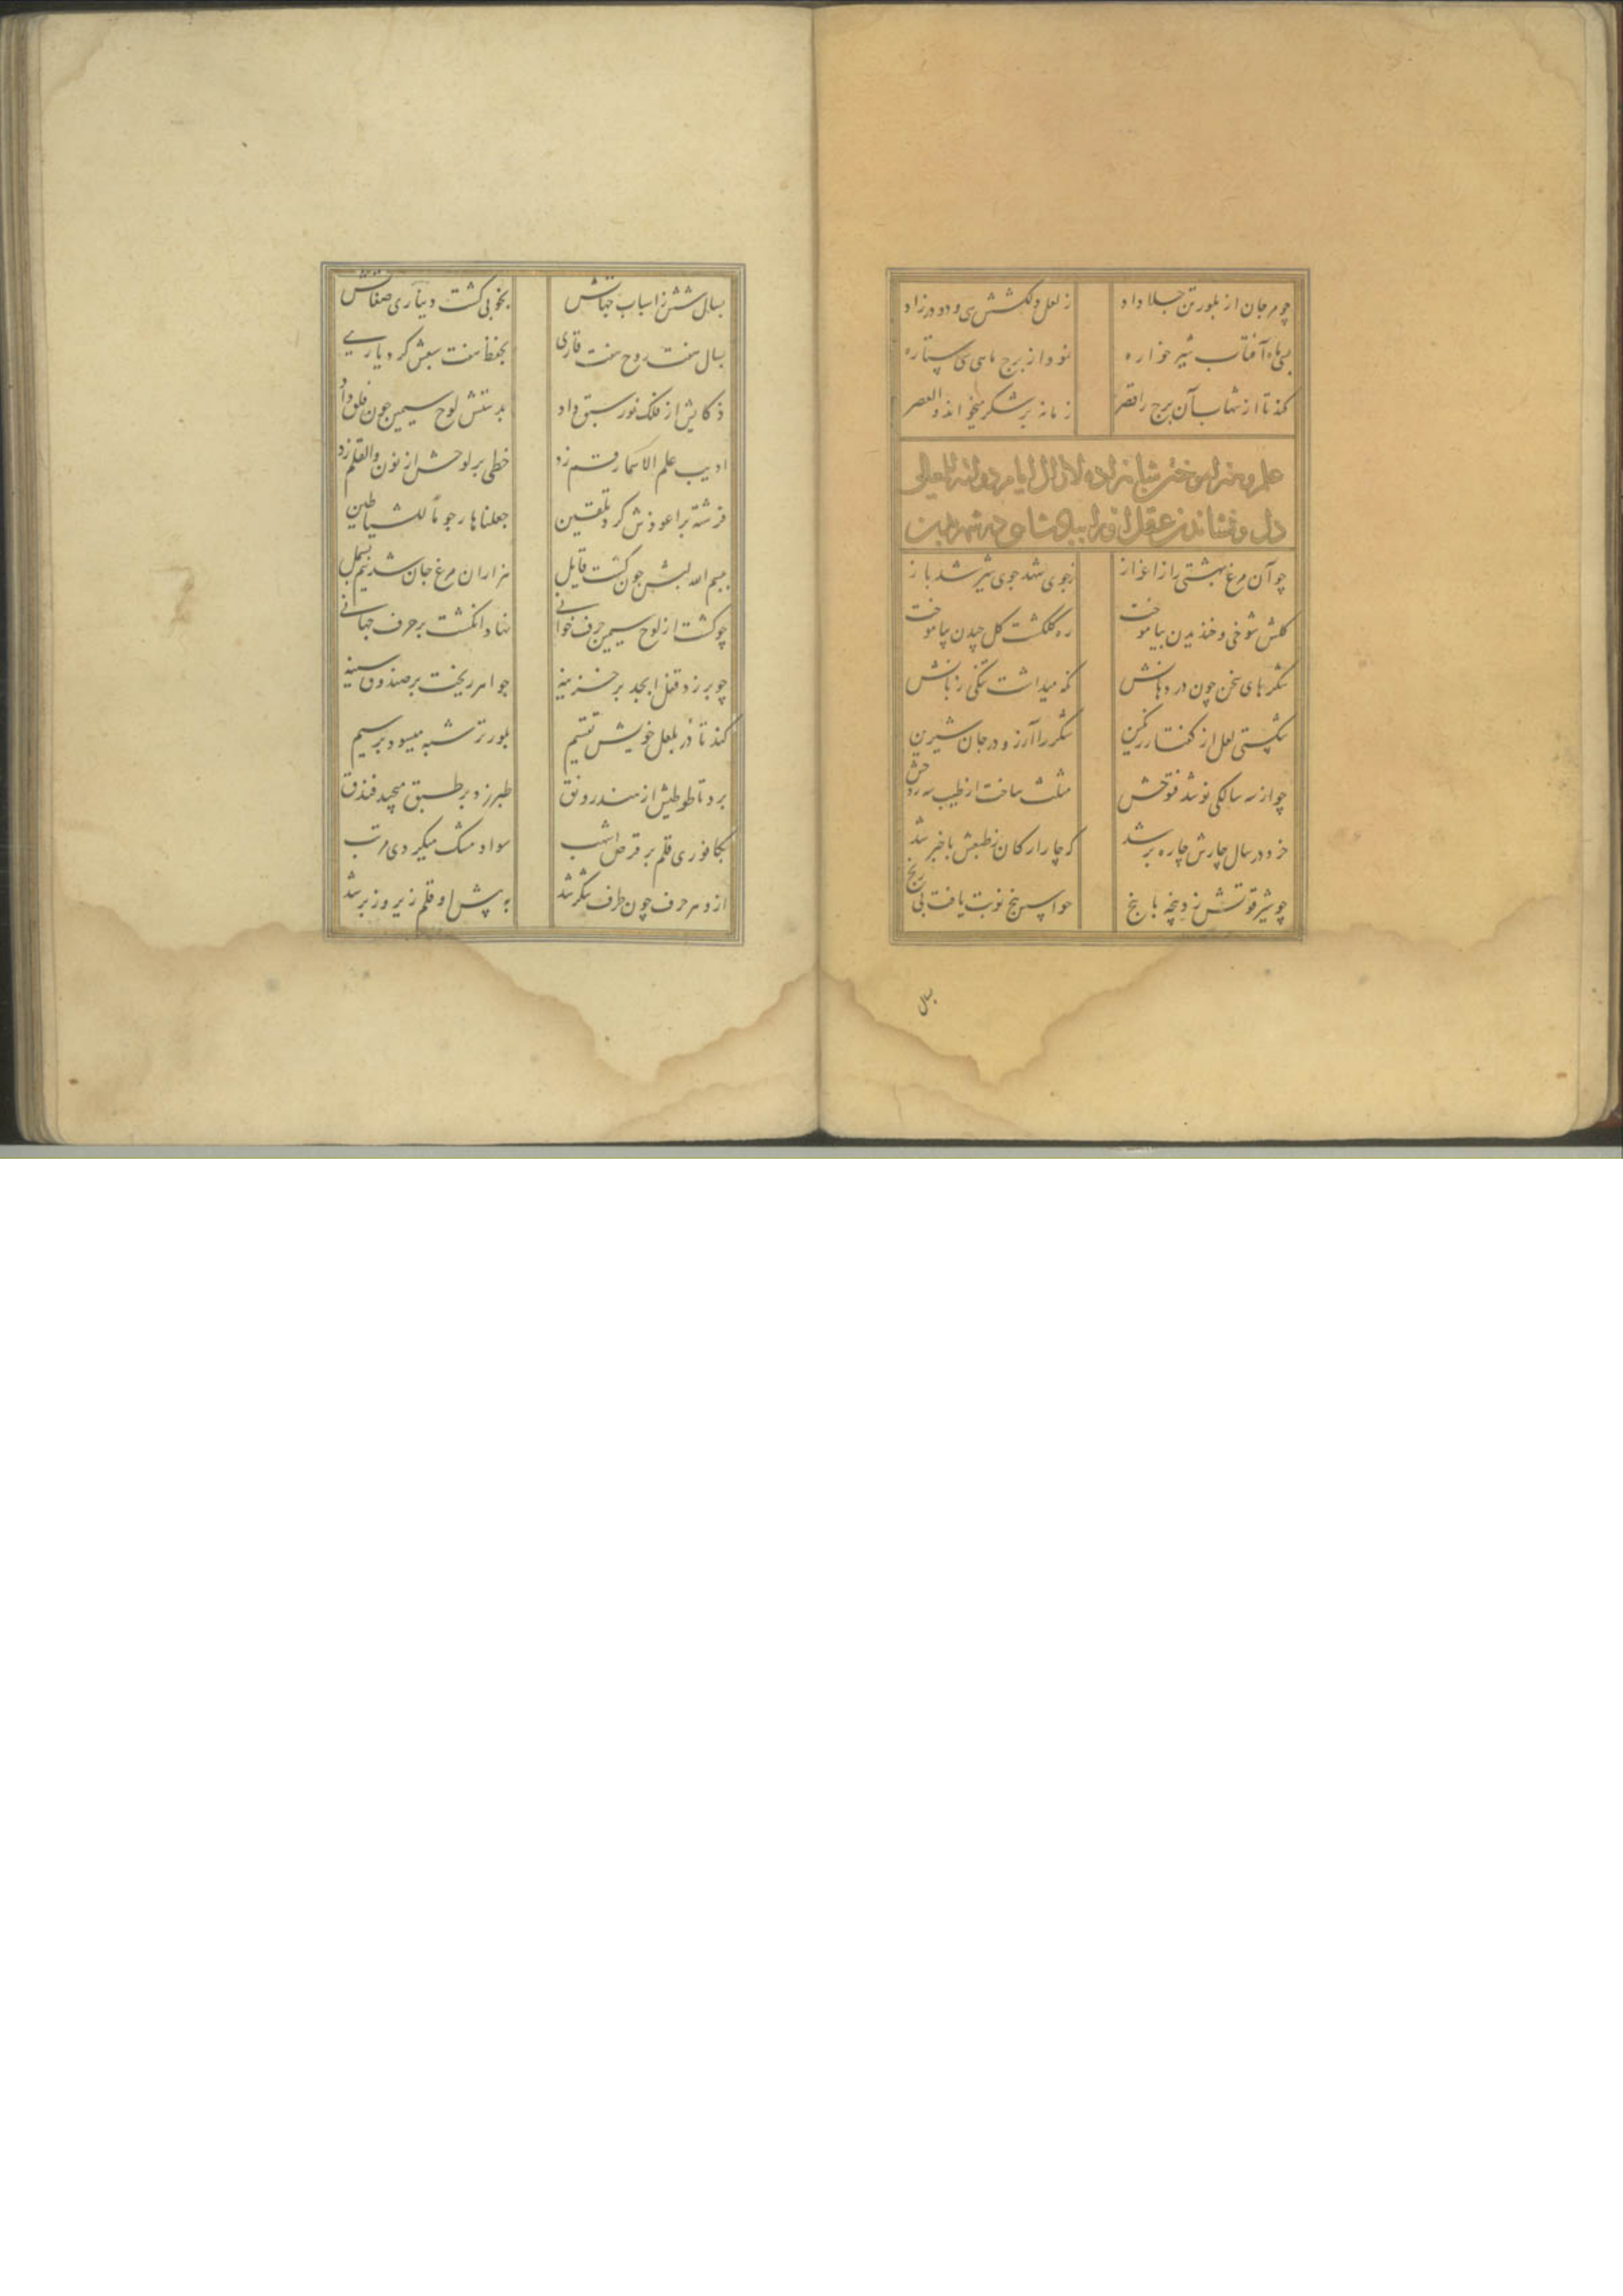 چو مرجان از بلور تن جلا داد ز لعل دلکشش سی و دو در زاد
بسی ماه آفتاب شیرخواره نمود از برج ماسی سی ستاره
کند تا از شهاب آن برج را قصر زمانه بر شکر میخواند والعصر
چو آن مرغ بهشتی را ز اعزاز ز جوی شهد جوی شیر شد باز
گلش شوخی و خندیدن بیاموخت ره گلگشت گل چیدن بیاموخت
شکرهای سخن چون در دهانش نگه میداشت تنگی زبانش
شکستی لعل از گفتار رنگین شکر را آرزو در جان شیرین
چو از سه سالگی نو شد فتوحش مثلث ساخت از طیب سه روحش
خرد در سال چارش چاره بر شد که چار ارکان ز طبعش با خبر شد
چو شیر قوتش زد پنجه با پنج حواس پنج نوبت یافت بی رنج
بسال
بسال شش ز اسباب جهاتش بخوبی گشت دیناری صفاتش
بسال هفت روح هفت قاری بحفظ هفت سبعش کرد یاری
ذکایش از فلک نور سبق داد بدستش لوح سیمین چون فلق داد
ادیب علم الاسما رقم زد خطی بر لوحش از نون والقلم زد
فرشته بر اعوذش کرد تلقین جعلناها رجوما للشیاطین
ببسم الله لبش چون گشت قایل هزاران مرغ جان شد نیم بسمل
چو گشت از لوح سیمین حرف خوانی نهاد انگشت بر حرف جهانی
چو بر زد قفل ابجد بر خزینه جواهر ریخت بر صندوق سینه
کند تا در بلعل خویش تقسیم بلور تر شبه میسود بر سیم
برد تا طوطیش از هند رونق طبرزد بر طبق میچید فندق
بکافوری قلم بر قرص اشهب سواد مشک میکردی مرتب
ازو هر حرف چون ظرف شکر شد به پیش او قلم زیر و زبر شد